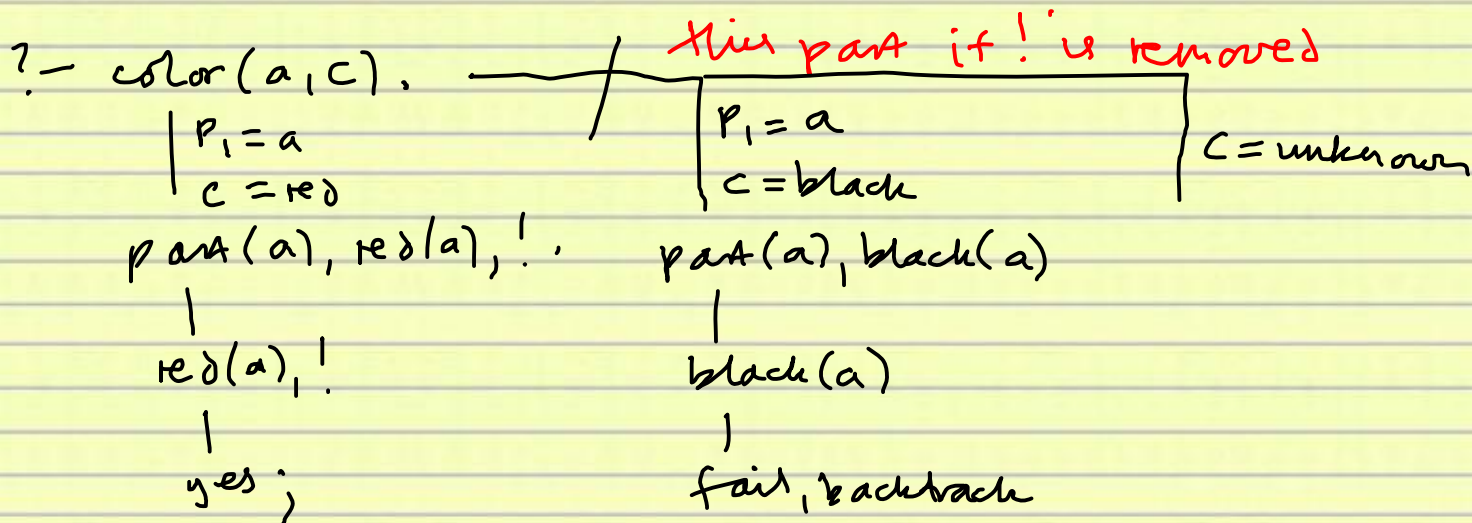 this part if ! is removed
?- color(a, C).
P₁ = a
C = red
P₁ = a
C = black
C = unknown
part(a), red(a), !.
part(a), black(a)
red(a), !
black(a)
yes ;
fail, backtrack